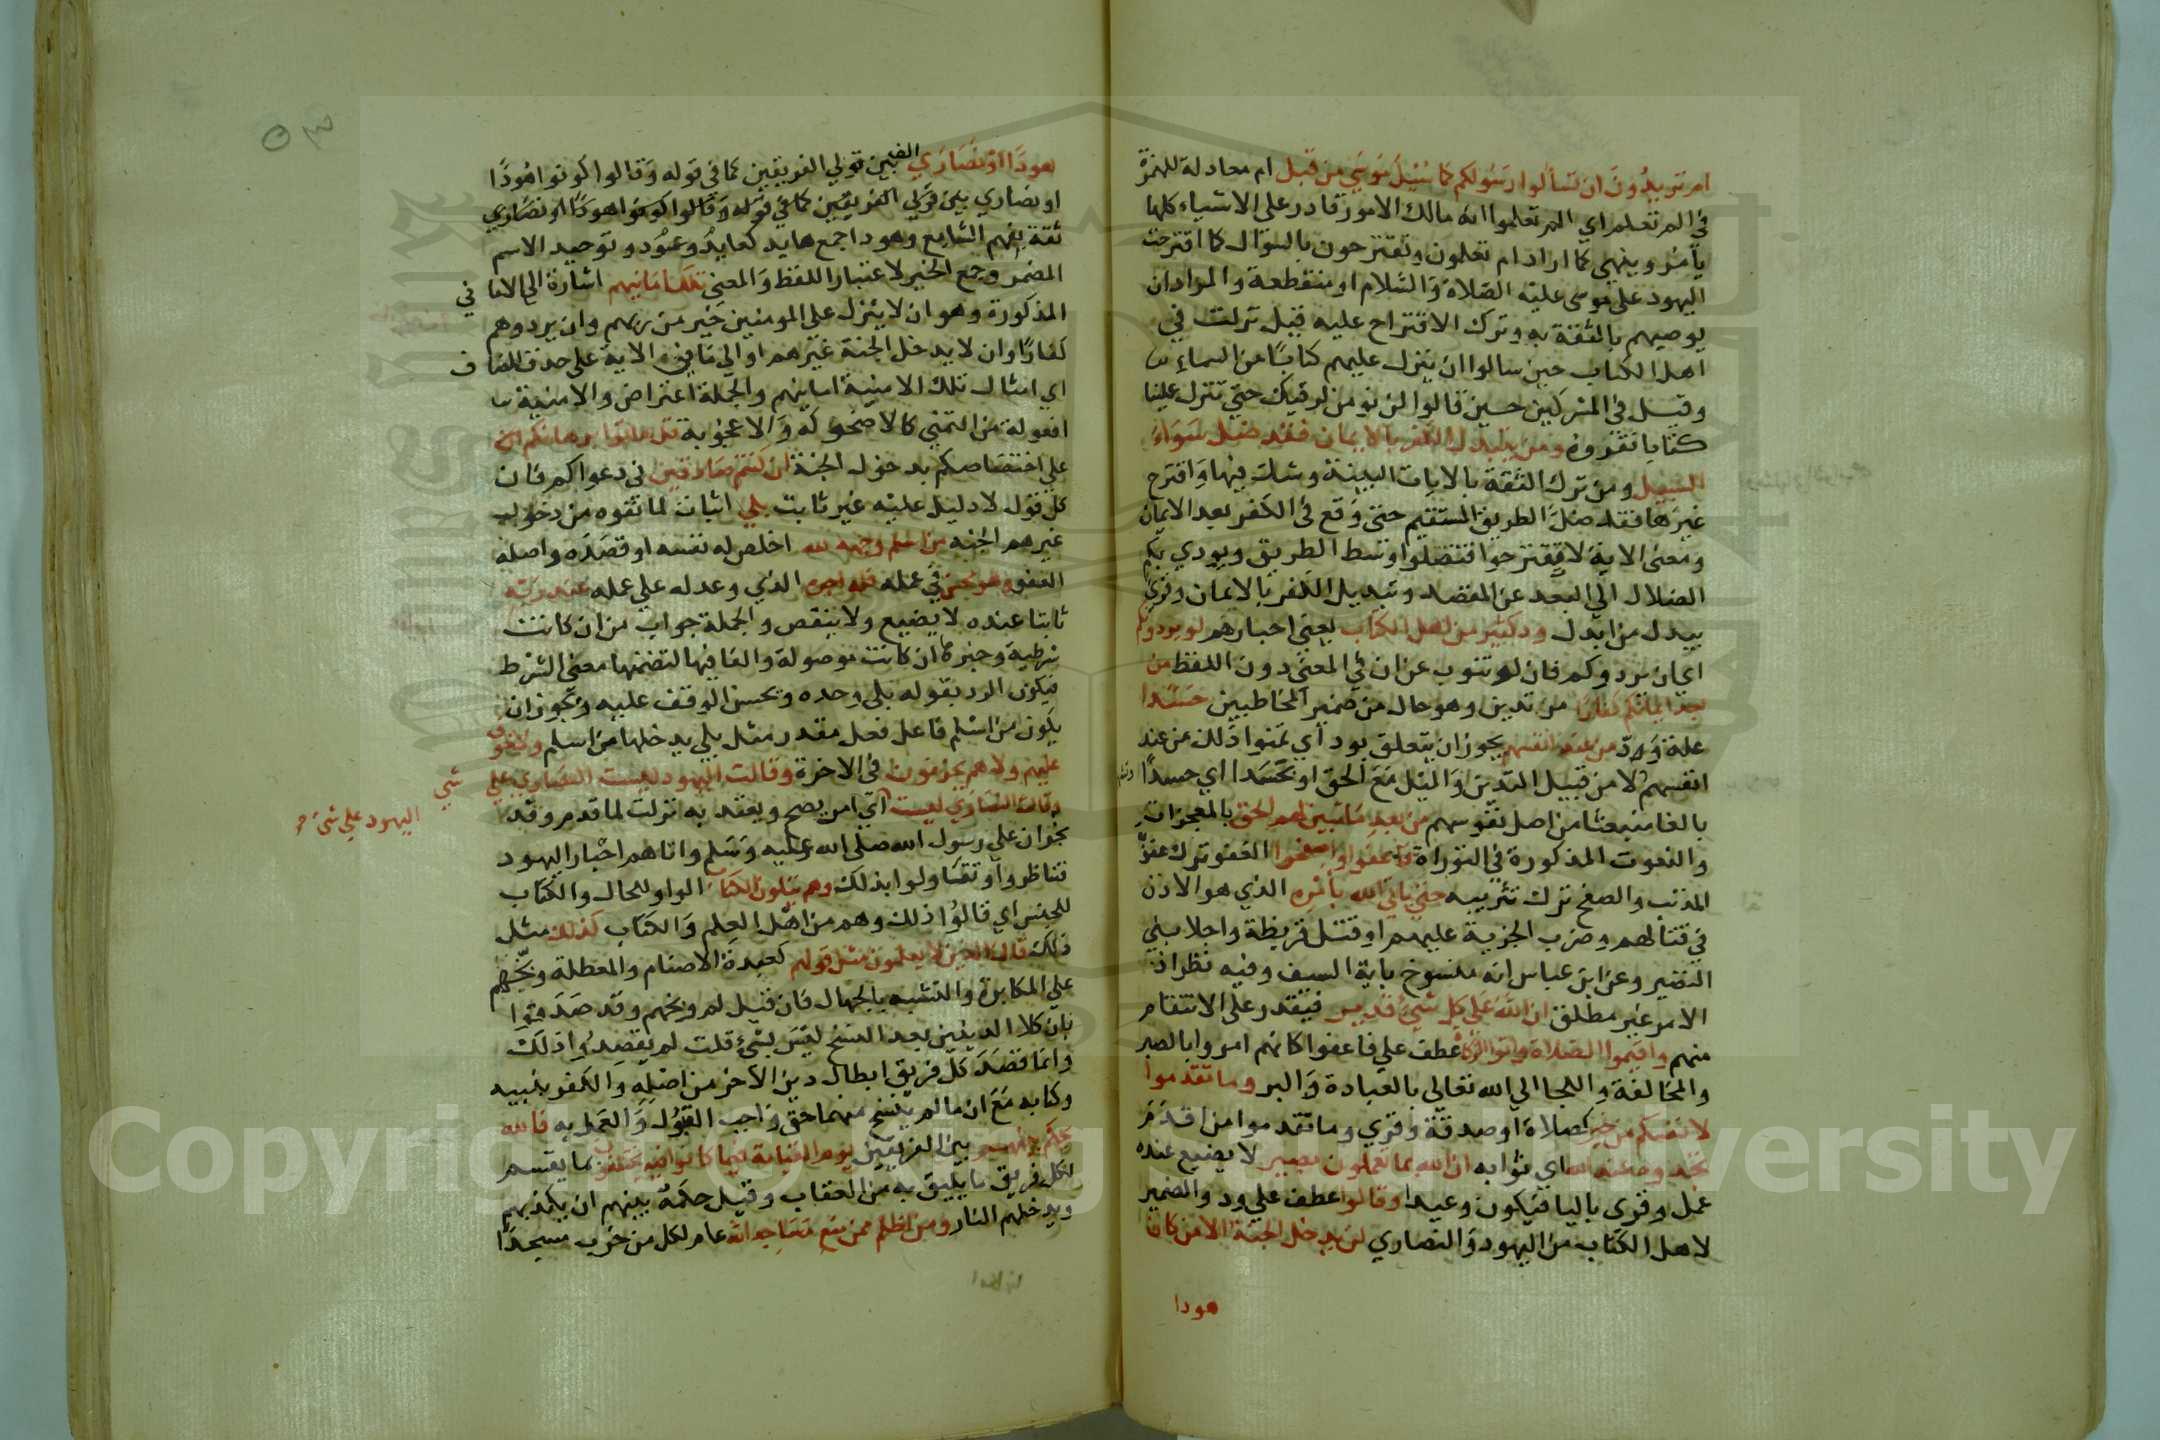 ام تريدون ان تسألوا رسولكم كما سئل موسي من قبل ام معادلة للهمزة
في الم تعلم اي الم تعلموا انه مالك الامور قادر على الاشياء كلها
يأمر وينهي كما اراد ام تعلمون وتقترحون بالسؤال كما اقترحت
اليهود على موسى عليه الصلاة والسلام او منقطعة والمراد ان
يوصيهم بالثقة به وترك الاقتراح عليه قيل نزلت في
اهل الكتاب حين سالوا ان ينزل عليهم كتابا من السماء
وقيل في المشركين حين قالوا لن نومن لرقيك حتى تنزل علينا
كتابا نقروه ومن يتبدل الكفر بالايمان فقد ضل سواء
السبيل ومن ترك الثقة بالايات البينة وشك فيها واقترح
غيرها فقد ضل الطريق المستقيم حتى وقع في الكفر بعد الايمان
ومعنى الاية لا تقترحوا فتضلوا وسط الطريق ويودي بكم
الضلال الي البعد عن المقصد وتبديل الكفر بالايمان وقري
يبدل من ابدل ود كثير من اهل الكتاب يعني احبارهم لو يردونكم
اي ان يردوكم فان لو تنوب عن ان في المعنى دون اللفظ من
بعد ايمانكم كفارا مرتدين وهو حال من ضمير المخاطبين حسدا
علة ود من عند انفسهم يجوز ان يتعلق بود أي تمنوا ذلك من عند
انفسهم لا من قبيل التدين والميل مع الحق او بحسدا اي حسدا
بالغا منبعثا من اصل نفوسهم من بعد ما تبين لهم الحق بالمعجزات
والنعوت المذكورة في التوراة فاعفوا واصفحوا العفو ترك عقوبة
المذنب والصفح ترك تثريبه حتي ياتي الله بأمره الذي هو الاذن
في قتالهم وضرب الجزية عليهم او قتل قريظة واجلا بني
النضير وعن ابن عباس انه منسوخ باية السيف وفيه نظر اذ
الامر غير مطلق ان الله على كل شيء قدير فيقدر على الانتقام
منهم واقيموا الصلاة واتوا الزكاة عطف علي فاعفوا كانهم امروا بالصبر
والمخالفة واللجا الي الله تعالي بالعبادة والبر وما تقدموا
لانفسكم من خير كصلاة او صدقة وقري وما تقدموا من اقدم
تجدوه عند الله اي ثوابه ان الله بما تعملون بصير لا يضيع عنده
عمل وقرى باليا فيكون وعيدا وقالوا عطف علي ود والضمير
لاهل الكتاب من اليهود والنصاري لن يدخل الجنة الا من كان
هودا
هودا او نصاري الف بين قولي الفريقين كما في قوله وقالوا كونوا هودا
او نصاري بين قولي الفريقين كما في قوله وقالوا كونوا هودا او نصاري
ثقة بفهم السامع وهود اجمع هايد كعايد وعود وتوحيد الاسم
المضمر وجمع الخبر لاعتبار اللفظ والمعني تلك امانيهم اشارة الي الاماني
المذكورة وهو ان لا ينزل على المومنين خير من ربهم وان يردوهم
كفارا وان لا يدخل الجنة غيرهم او الي ما في الاية على حذف المضاف
اي امثال تلك الامنية امانيهم والجملة اعتراض والامنية
افعولة من التمني كالاضحوكة والاعجوبة قل هاتوا برهانكم
علي اختصاصكم بدخول الجنة ان كنتم صادقين في دعواكم فان
كل قول لا دليل عليه غير ثابت بلي اثبات لما نفوه من دخول
غيرهم الجنة من اسلم وجهه لله اخلص له نفسه او قصده واصله
العضو وهو محسن في عمله فله اجره الذي وعد له علي عمله عند ربه
ثابتا عنده لا يضيع ولا ينقص والجملة جواب من ان كانت
شرطية وخبرها ان كانت موصولة والفا فيها لتضمنها معنى الشرط
فيكون الرد بقوله بلي وحده ويحسن الوقف عليه ويجوز ان
يكون من اسلم فاعل فعل مقدر مثل بلي يدخلها من اسلم ولا خوف
عليهم ولا هم يحزنون في الاخرة وقالت اليهود ليست النصاري علي شي
وقالت النصاري ليست اليهود علي شيء اي امر يصح ويعتد به نزلت لما قدم وفد
نجران علي رسول الله صلى الله عليه وسلم واتاهم احبار اليهود
فتناظروا وتقاولوا بذلك وهم يتلون الكتاب الواو للحال والكتاب
للجنس اي قالوا ذلك وهم من اهل العلم والكتاب كذلك مثل
ذلك قال الذين لا يعلمون مثل قولهم كعبدة الاصنام والمعطلة وبخهم
علي المكابرة والتشبه بالجهال فان قيل لم وبخهم وقد صدقوا
بان كلا الدينين بعد النسخ ليس بشيء قلت لم يقصدوا ذلك
وانما قصد كل فريق ابطال دين الاخر من اصله والكفر بنبيه
وكتابه مع ان ما لم ينسخ منهما حق واجب القبول والعمل به فالله
يحكم بينهم بين الفريقين يوم القيامة فيما كانوا فيه يختلفون بما يقسم
لكل فريق ما يليق به من العقاب وقيل حكمه بينهم ان يكذبهم
ويدخلهم النار ومن اظلم ممن منع مساجد الله عام لكل من خرب مسجدا
Copyright © King Saud University